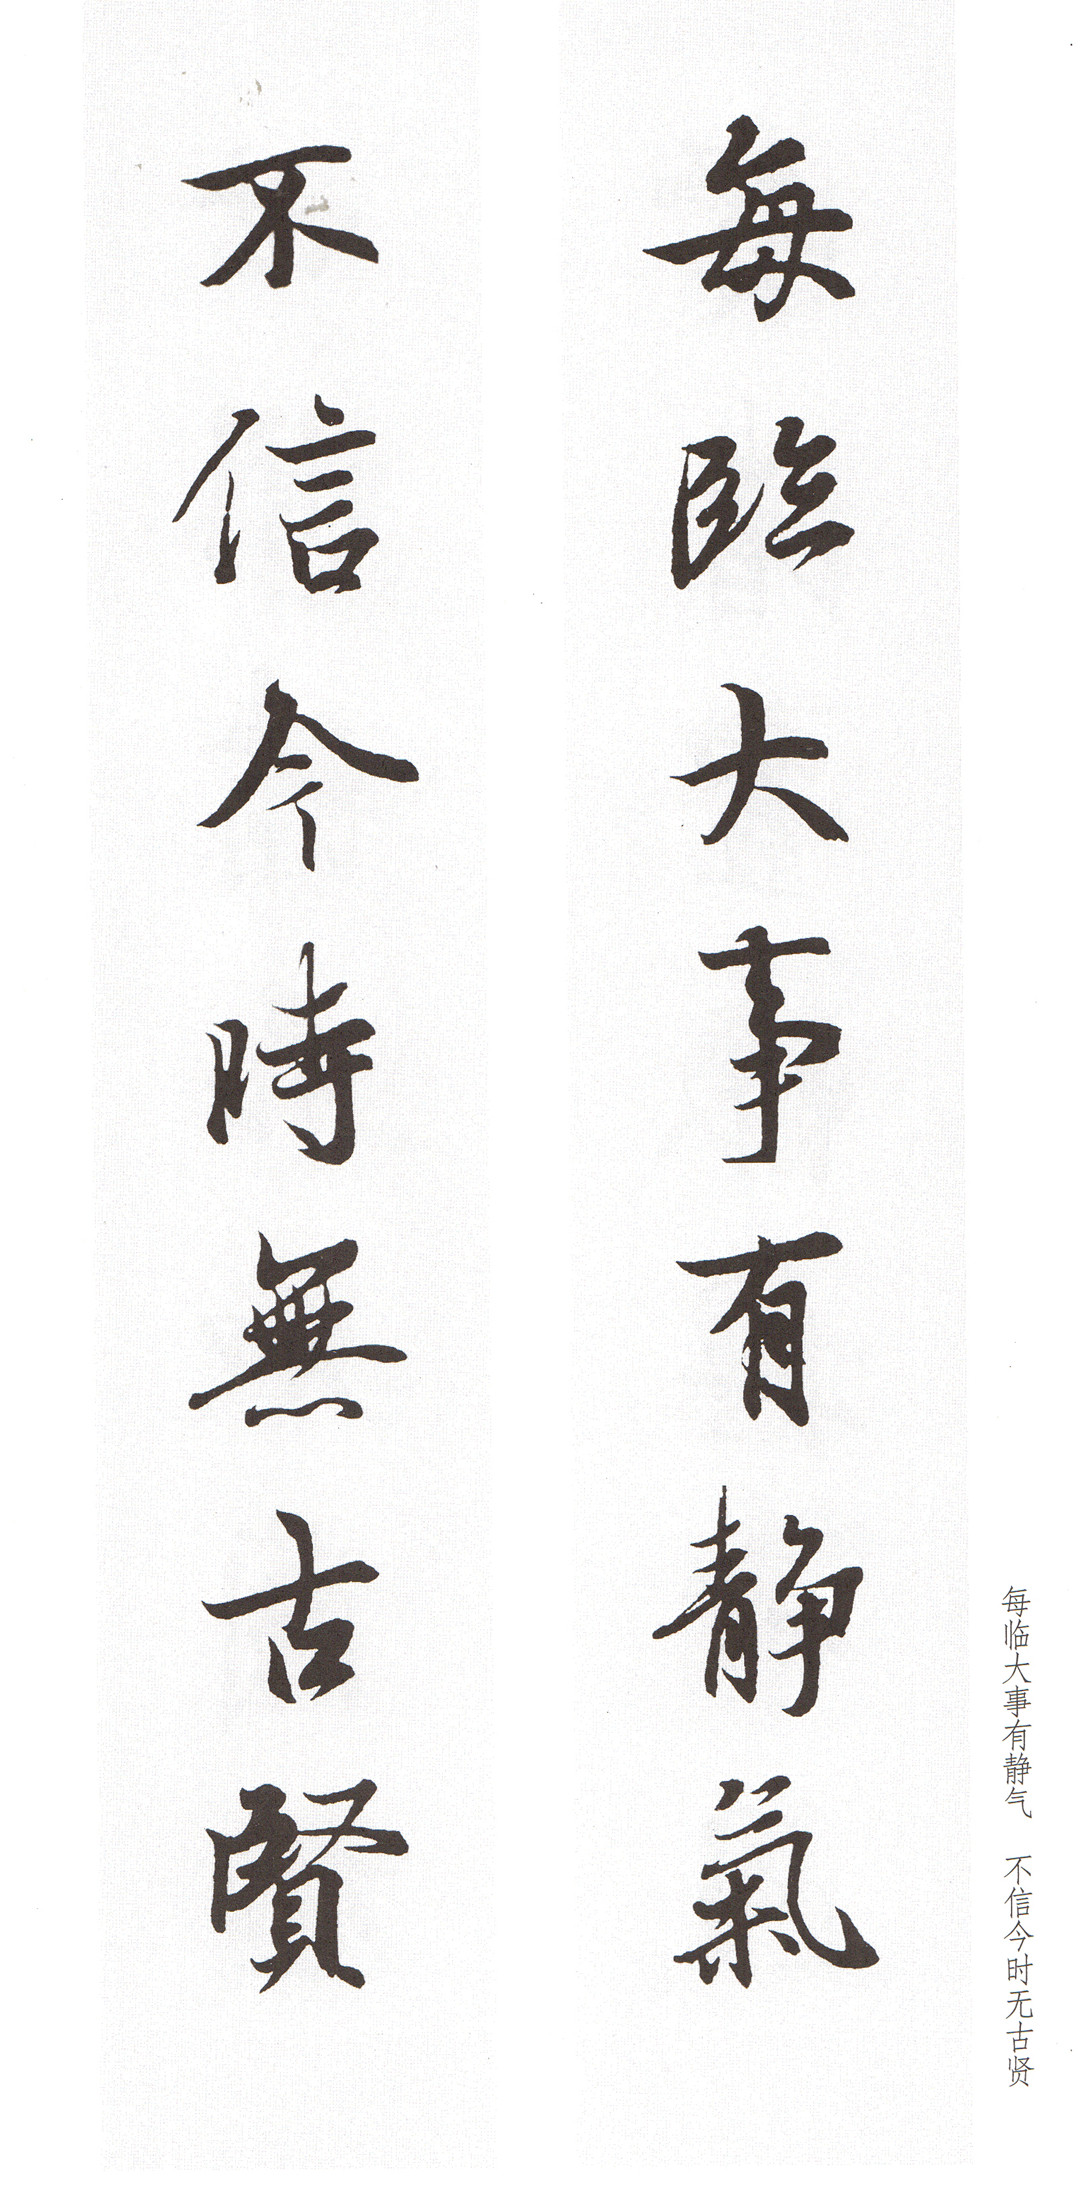 每臨大事有静氣
不信今時無古賢
每临大事有静气 不信今时无古贤